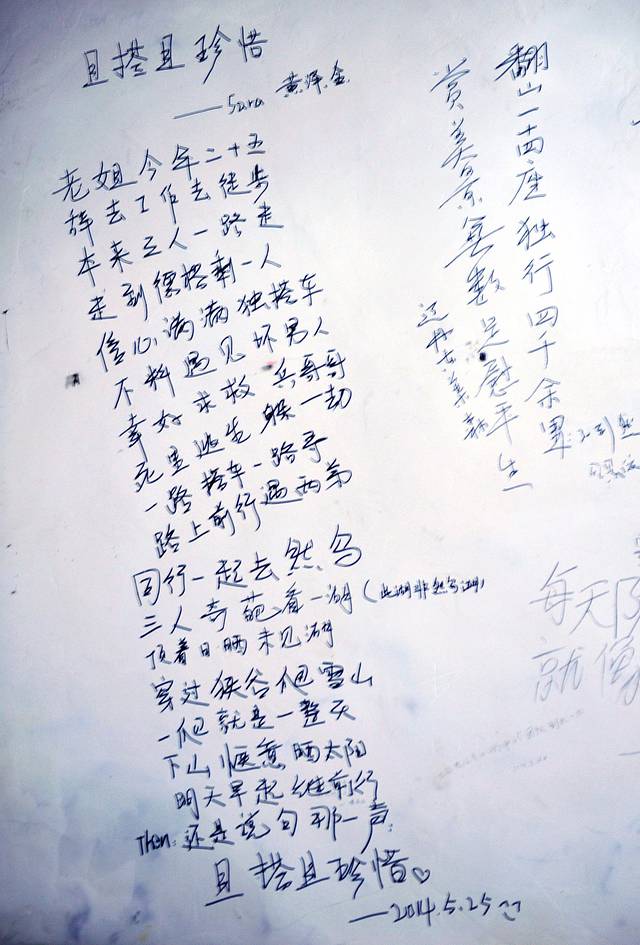 且搭且珍惜
——Sara 黄泽金
老姐今年二十五
辞去工作去徒步
本来三人一路走
走到德格剩一人
信心满满独搭车
不料遇见坏男人
幸好求救兵哥哥
死里逃生躲一劫
一路搭车一路寻
路上前行遇两弟
同行一起去然乌
三人奇葩看一湖(此湖非然乌湖)
顶着日晒未见湖
穿过狭谷爬雪山
一爬就是一整天
下山惬意晒太阳
明天早起继前行
Then:还是说句那一声:
且搭且珍惜♡
——2014.5.25
翻山一十四座独行四千余里
赏美景无数足慰平生
每天
就像